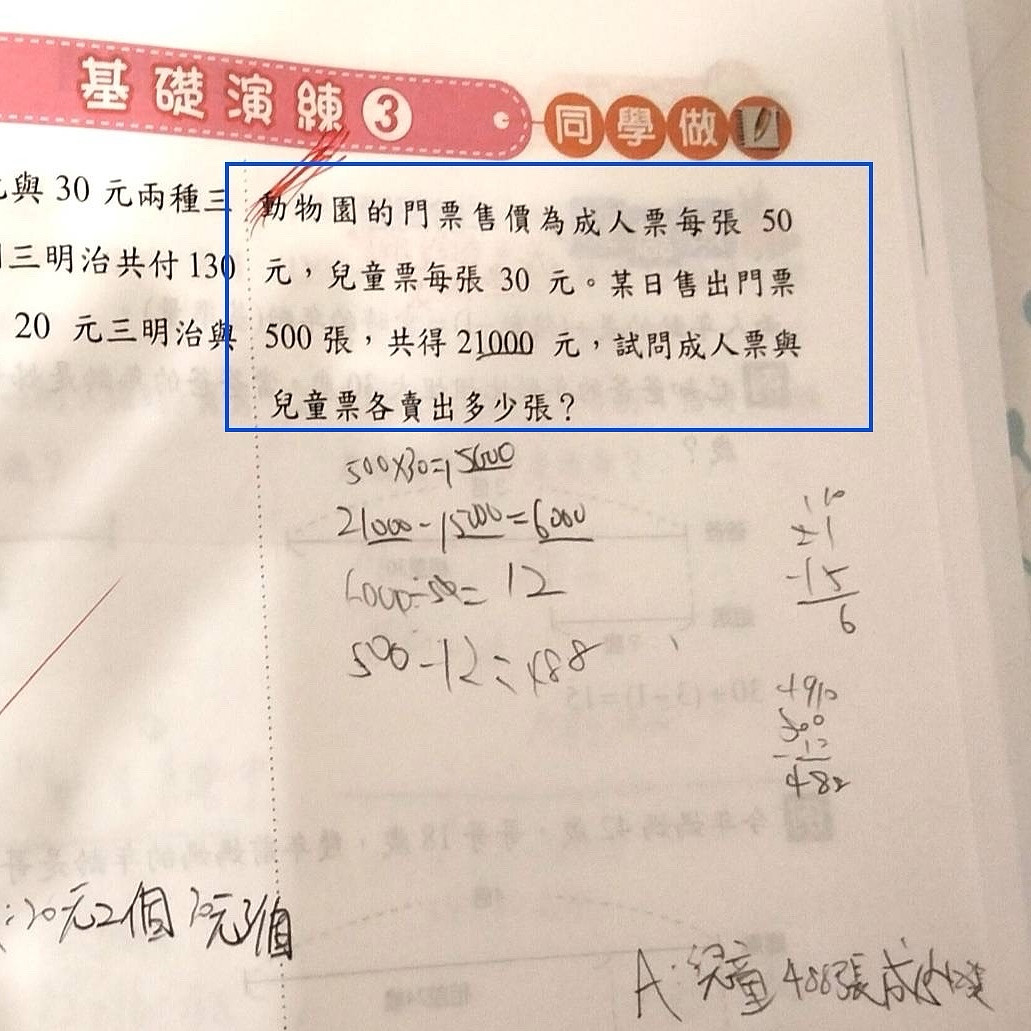 基礎演練3 同學做
與 30 元兩種三
三明治共付 130
20 元三明治與
動物園的門票售價為成人票每張 50
元，兒童票每張 30 元。某日售出門票
500 張，共得 21000 元，試問成人票與
兒童票各賣出多少張？
500×30=15000
21000-15000=6000
6000÷50= 12
500-12=488
21
-15
6
500
12
30元2個
A:兒童488張成